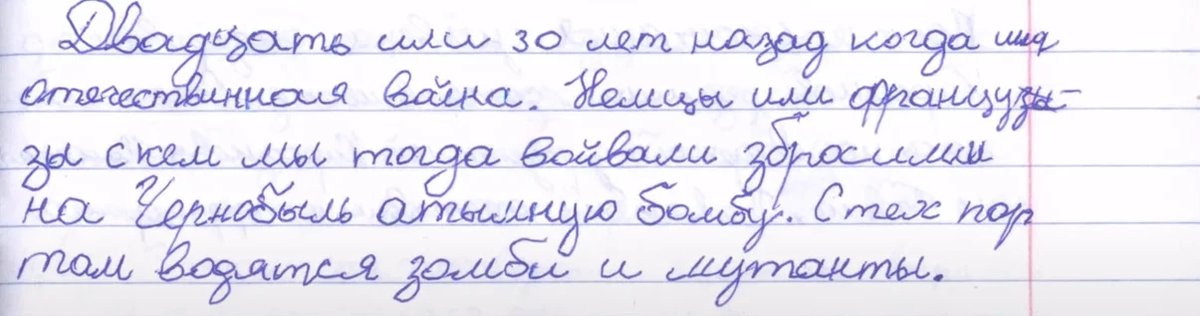 Двадцать или 30 лет назад когда шла
отечественная война. Немцы или французы-
зы с кем мы тогда войвали збросили
на Чернобыль атымную бомбу. С тех пор
там водятся зомби и мутанты.